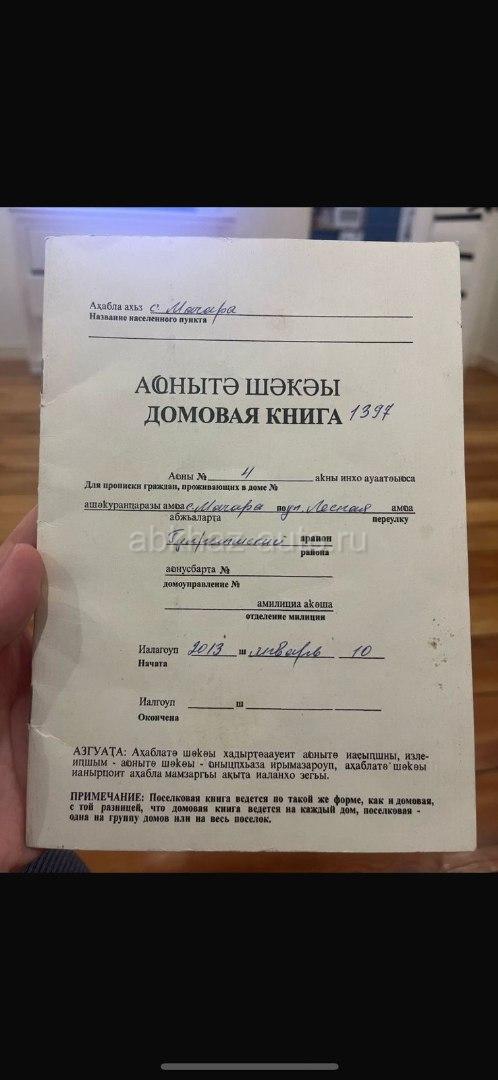 Аҳабла ахьӡ с. Мачара
Название населенного пункта
АҨНЫТӘ ШӘҞӘЫ
ДОМОВАЯ КНИГА 1397
Аҩны № 4 аҟны инхо ауааҭәыҩса
Для прописки граждан, проживающих в доме №
с. Мачара по ул. Лесная амҩа
абжьаларҭа переулку
Гулрыпшский араион
района
аҩнусбарҭа №
домоуправление №
амилициа аҟәша
отделение милиции
Иалагоуп 2013 ш январь 10
Начата
Иалгоуп ш
Окончена
abkhaz-auto.ru
АЗГУАҬА: Аҳаблатә шәҟәы хадырҭәаауеит аҩнытә иаҩыԥшны, излеи-
ԥшым - аҩнытә шәҟәы - ҩныцԥхьаӡа ирымазароуп, аҳаблатә шәҟәы
ианырҵоит аҳабла мамзаргьы ақыҭа иаланхо зегьы.
ПРИМЕЧАНИЕ: Поселковая книга ведется по такой же форме, как и домовая,
с той разницей, что домовая книга ведется на каждый дом, поселковая -
одна на группу домов или на весь поселок.